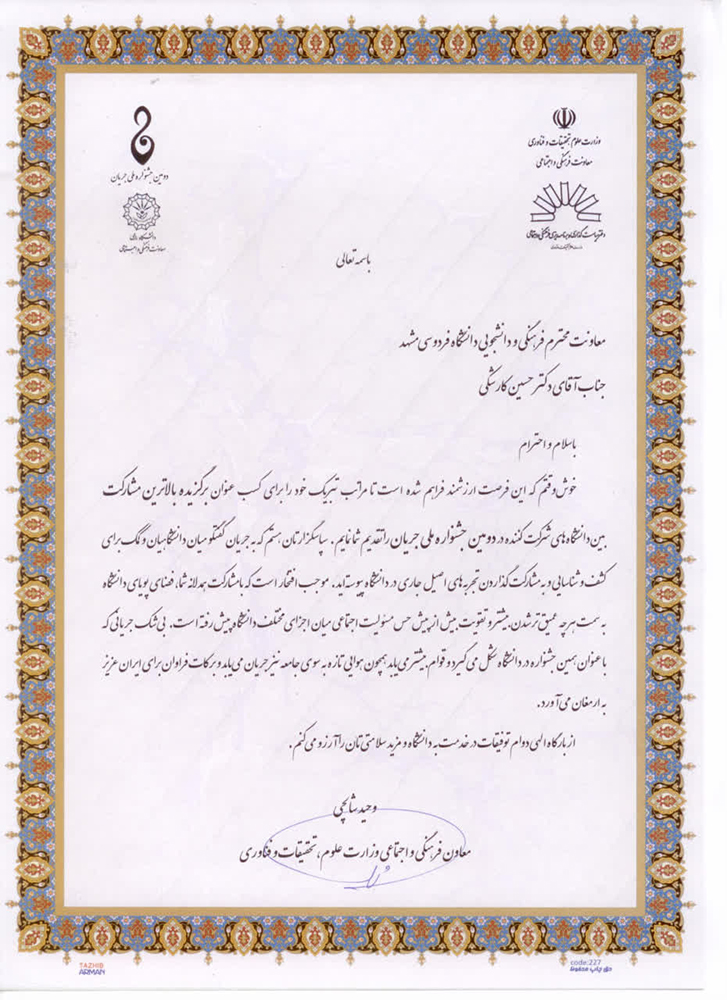 وزارت علوم، تحقیقات و فناوری
معاونت فرهنگی و اجتماعی
دومین جشنواره ملی جریان
معاونت فرهنگی و اجتماعی
باسمه تعالی
معاونت محترم فرهنگی و دانشجویی دانشگاه فردوسی مشهد
جناب آقای دکتر حسین کارشکی
باسلام و احترام
خوش‌وقتم که این فرصت ارزشمند فراهم شده است تا مراتب تبریک خود را برای کسب عنوان برگزیده بالاترین مشارکت
بین دانشگاه‌های شرکت کننده در دومین جشنواره ملی جریان را تقدیم شما نمایم. سپاسگزارتان هستم که به جریان گفتگو میان دانشگاهیان و کمک برای
کشف و شناسایی و به مشارکت گذاردن تجربه‌های اصیل جاری در دانشگاه پیوسته‌اید. موجب افتخار است که با مشارکت همدلانه شما، فضای پویای دانشگاه
به سمت هرچه عمیق‌تر شدن، بیشتر و تقویت بیش از پیش حس مسئولیت اجتماعی میان اجزای مختلف دانشگاه پیش رفته است. بی‌شک جریانی که
با عنوان همین جشنواره در دانشگاه شکل می‌گیرد و قوام بیشتر می‌یابد همچون هوایی تازه به سوی جامعه نیز جریان می‌یابد و برکات فراوان برای ایران عزیز
به ارمغان می‌آورد.
از بارگاه الهی دوام توفیقات در خدمت به دانشگاه و مزید سلامتی‌تان را آرزو می‌کنم.
وحید شالچی
معاون فرهنگی و اجتماعی وزارت علوم، تحقیقات و فناوری
TAZHIB
ARMAN
code:227
حق چاپ محفوظ